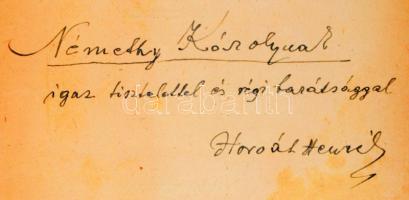 Némethy Károlynak
igaz tisztelettel és régi barátsággal
Horvát Henrik
darabanth